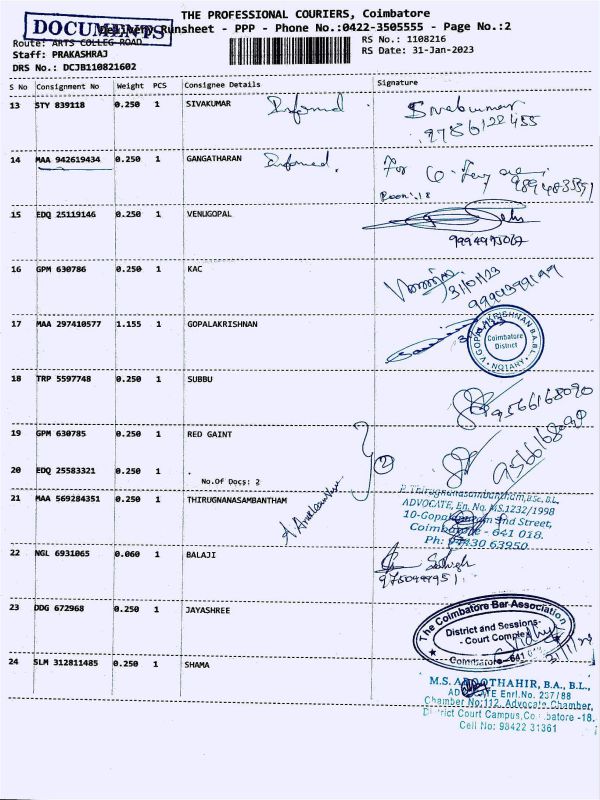 THE PROFESSIONAL COURIERS, Coimbatore
DOCUMENTS
Runsheet - PPP - Phone No.:0422-3505555 - Page No.:2
Route: ARTS COLLEG ROAD
RS No.: 1108216
Staff: PRAKASHRAJ
RS Date: 31-Jan-2023
DRS No.: DCJB110821602
S No Consignment No Weight PCS Consignee Details Signature
13 STY 839118 0.250 1 SIVAKUMAR Informed Sivakumar
9786122455
14 MAA 942619434 0.250 1 GANGATHARAN Informed. For
15 EDQ 25119146 0.250 1 VENUGOPAL
9994995067
16 GPM 630786 0.250 1 KAC
31/01/23
9994399199
17 MAA 297410577 1.155 1 GOPALAKRISHNAN
V.GOPALAKRISHNAN B.A.B.L.
Coimbatore
District
NOTARY
18 TRP 5597748 0.250 1 SUBBU
9566168090
19 GPM 630785 0.250 1 RED GAINT
9566168090
20 EDQ 25583321 0.250 1 .
2
No.Of Docs: 2
21 MAA 569284351 0.250 1 THIRUGNANASAMBANTHAM
P. Thirugnanasambantham, BSc, B.L,
ADVOCATE, En. No. M.S.1232/1998
2nd Street,
Coimbatore - 641 018.
22 NGL 6931065 0.060 1 BALAJI
23 DDG 672968 0.250 1 JAYASHREE
The Coimbatore Bar Association
District and Sessions
Court Complex
Coimbatore-641
24 SLM 312811485 0.250 1 SHAMA
M.S. B.A., B.L.,
Enrl.No. 237/88
Chamber No:112, Advocate Chamber,
District Court Campus, -18.
Cell No: 98422 31361